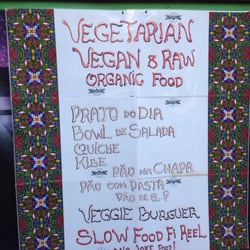 VEGETARIAN
VEGAN & RAW
ORGANIC FOOD
PRATO DO DIA
BOWL DE SALADA
QUICHE
KIBE
PÃO NA CHAPA
PÃO COM PASTA
PÃO DE Q.?
VEGGIE BURGUER
SLOW FOOD FI REEL
JOKE FOOD!